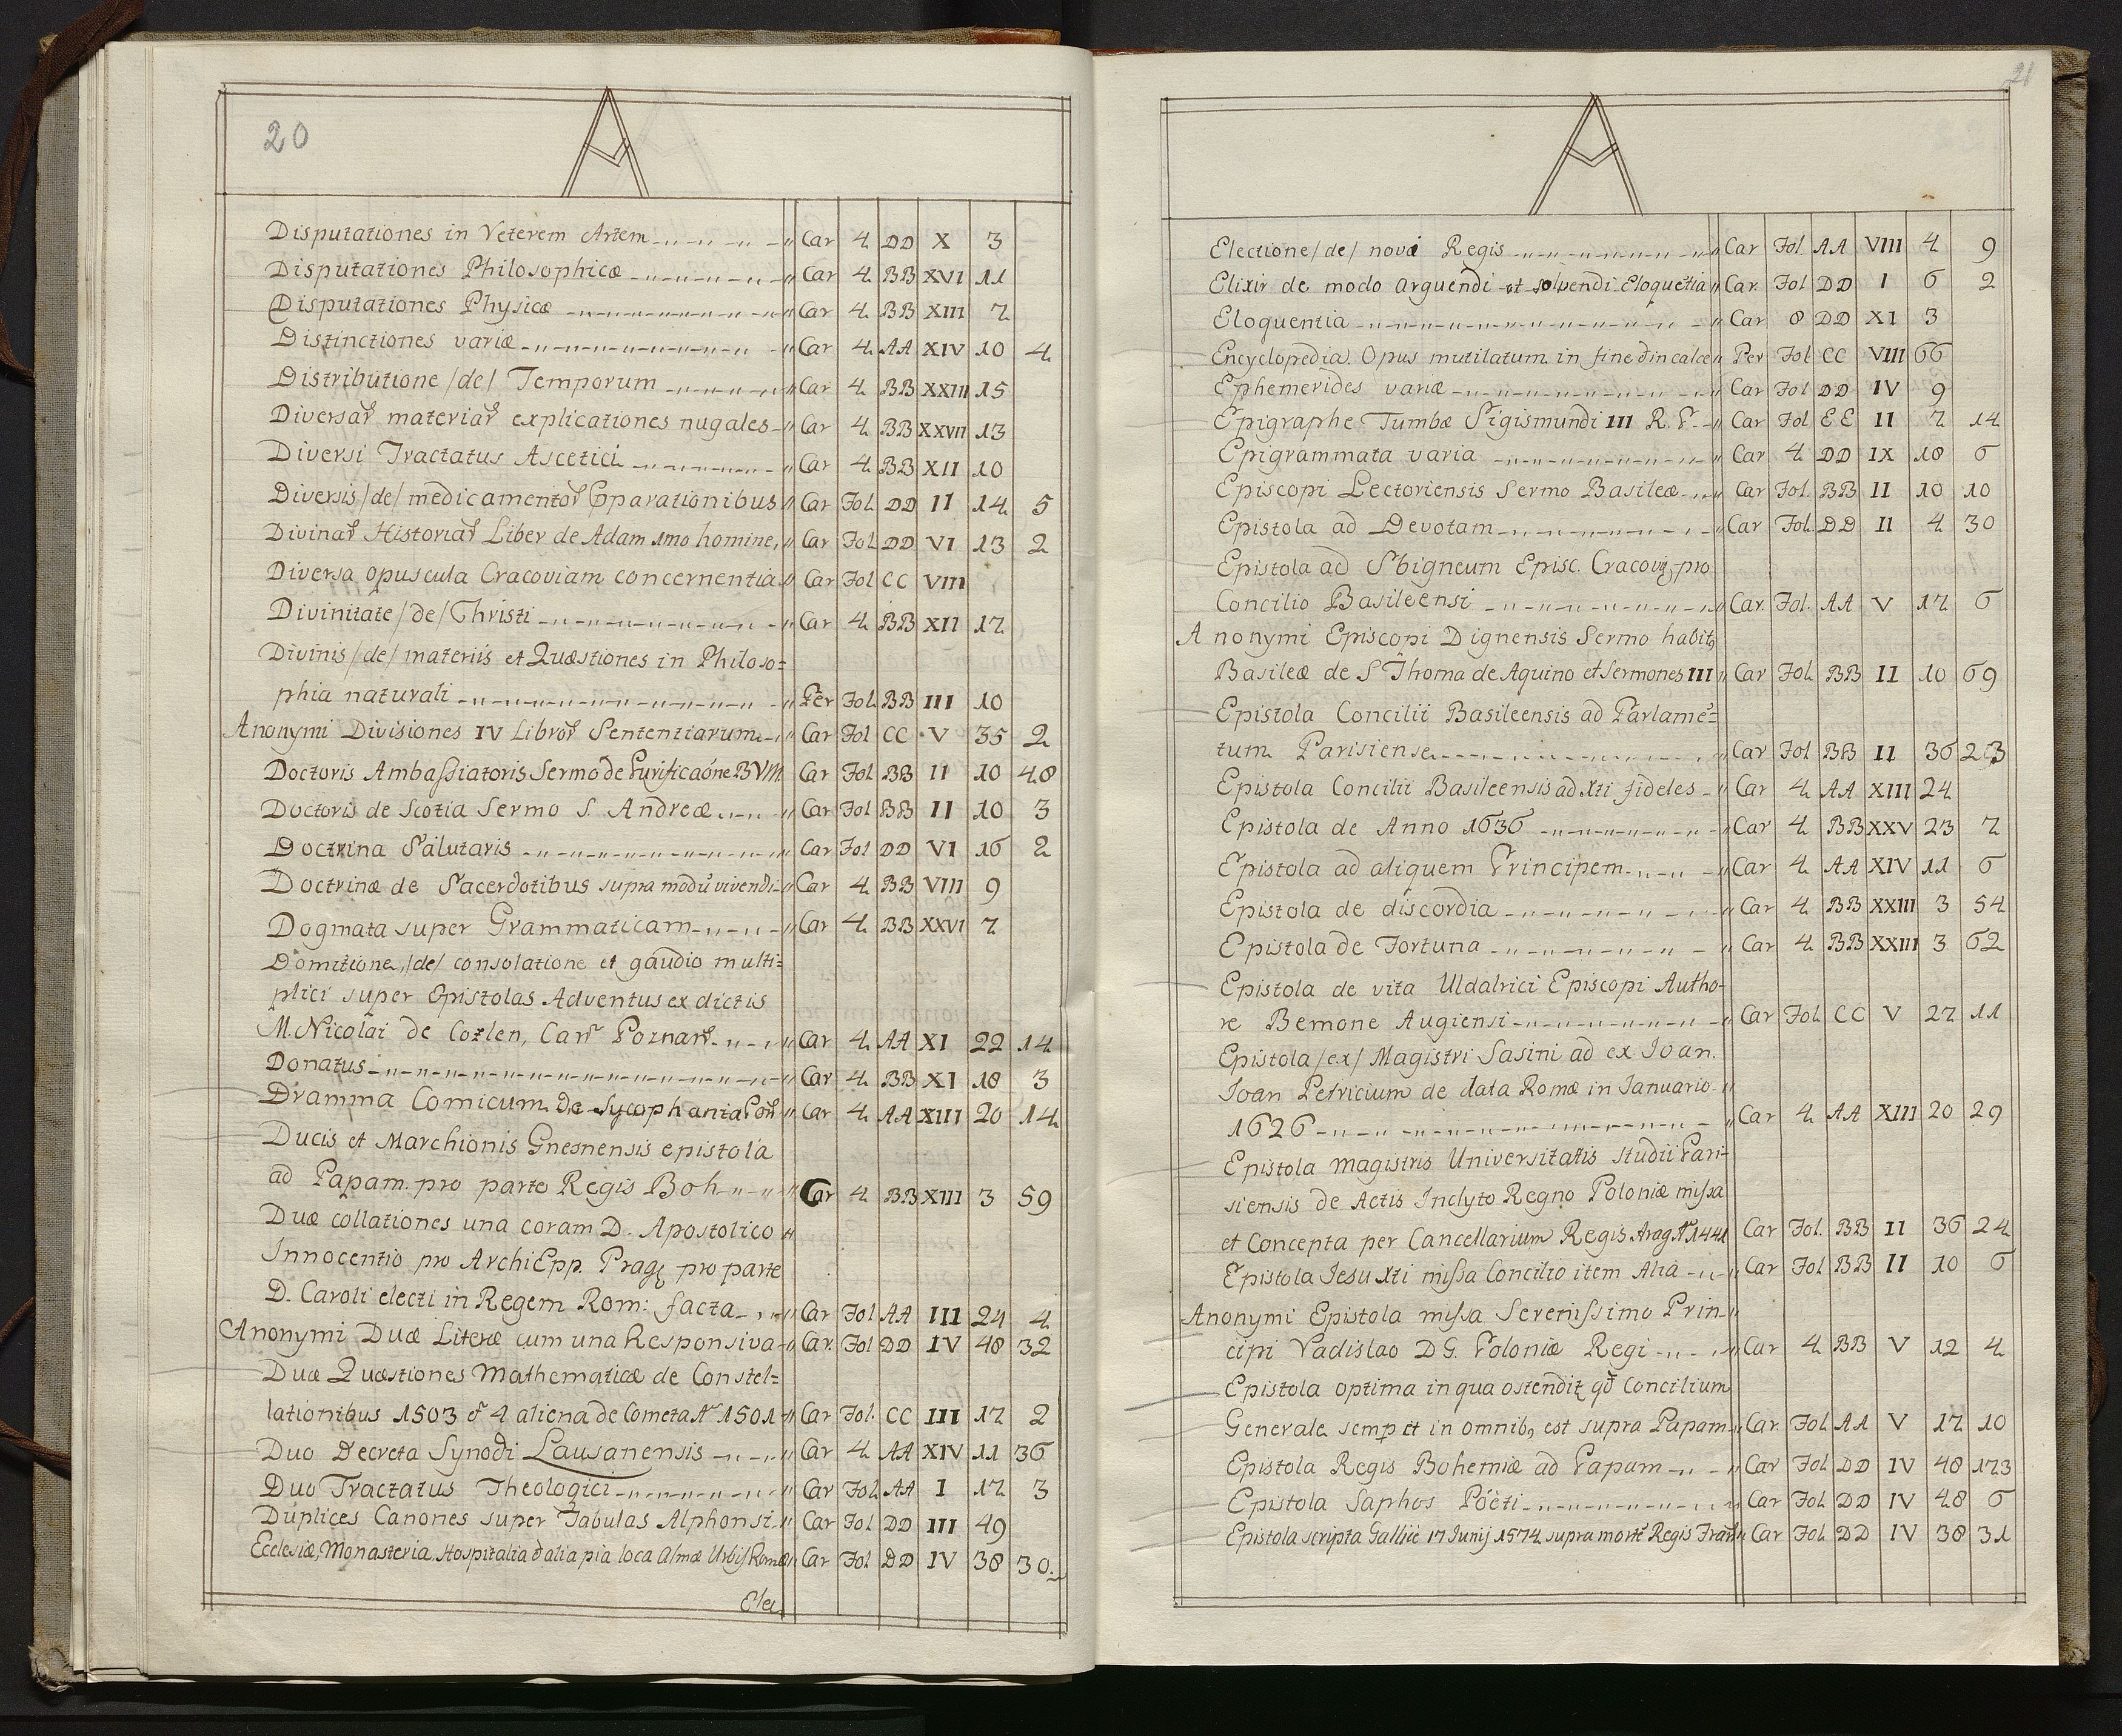 20
A
Disputationes in Veterem Artem Car 4 DD X 3
Disputationes Philosophicæ Car 4 BB XVI 11
Disputationes Physicæ Car 4 BB XIII 7
Distinctiones variæ Car 4 AA XIV 10 4
Distributione /de/ Temporum Car 4 BB XXIII 15
Diversaꝝ materiaꝝ explicationes nugales Car 4 BB XXVII 13
Diversi Tractatus Ascetici Car 4 BB XII 10
Diversis /de/ medicamentoꝝ Ꝯparationibus Car Fol DD II 14 5
Divinaꝝ Historiaꝝ Liber de Adam 1mo homine, Car Fol DD VI 13 2
Diversa opuscula Cracoviam concernentia Car Fol CC VIII
Divinitate /de/ Christi Car 4 BB XII 17
Divinis /de/ materiis et Quæstiones in Philoso=
phia naturali Per Fol BB III 10
Anonymi Divisiones IV Libroꝝ Sententiarum Car Fol CC V 35 2
Doctoris Ambaßiatoris Sermo de Purificaóne BVM Car Fol BB II 10 48
Doctoris de Scotia Sermo S. Andreæ Car Fol BB II 10 3
Doctrina Salutaris Car Fol DD VI 16 2
Doctrinæ de Sacerdotibus supra modū vivendi Car 4 BB VIII 9
Dogmata super Grammaticam Car 4 BB XXVI 7
Domitione, /de/ consolatione et gaudio multi=
plici super Epistolas Adventus ex dictis
M. Nicolai de Cozlen, Canꝝ Poznanꝝ Car 4 AA XI 22 14
Donatus Car 4 BB XI 18 3
Dramma Comicum de Sycophantia Car 4 AA XIII 20 14
Ducis et Marchionis Gnesnensis epistola
ad Papam pro parte Regis Boh Car 4 BB XIII 3 59
Duæ collationes una coram D. Apostolico
Innocentio pro ArchiEpp. Pragę pro parte
D. Caroli electi in Regem Rom: facta Car Fol AA III 24 4
Anonymi Duæ Literæ cum una Responsiva Car. Fol DD IV 48 32
Duæ Quæstiones Mathematicæ de Constel=
lationibus 1503 et 4 aliena de Cometa Aº 1501 Car Fol. CC III 17 2
Duo Decreta Synodi Lausanensis Car 4 AA XIV 11 36
Duo Tractatus Theologici Car Fol AA I 17 3
Duplices Canones super Tabulas Alphonsi Car Fol DD III 49
Ecclesiæ, Monasteria, Hospitalia et alia pia loca Almæ Urbis Romæ Car Fol DD IV 38 30
Elec
21
A
Electione /de/ novi Regis Car Fol AA VIII 4 9
Elixir de modo arguendi et solvendi Eloquētia Car Fol DD I 6 2
Eloquentia Car 8 DD XI 3
Encyclopedia. Opus mutilatum in fine et in calce Per Fol CC VIII 66
Ephemerides variæ Car Fol DD IV 9
Epigraphe Tumbæ Sigismundi III R. P. Car Fol EE II 7 14
Epigrammata varia Car 4 DD IX 18 6
Episcopi Lectoriensis Sermo Basileæ Car Fol. BB II 10 10
Epistola ad Devotam Car Fol. DD II 4 30
Epistola ad Sbigneum Episc. Cracovię pro
Concilio Basileensi Car. Fol. AA V 17 6
Anonymi Episcopi Dignensis Sermo habitꝰ
Basileæ de S Thoma de Aquino et Sermones III Car Fol BB II 10 69
Epistola Concilii Basileensis ad Parlamē=
tum Parisiense Car Fol BB II 36 23
Epistola Concilii Basileensis ad Xti fideles Car 4 AA XIII 24
Epistola de Anno 1636 Car 4 BB XXV 23 7
Epistola ad aliquem Principem Car 4 AA XIV 11 6
Epistola de discordia Car 4 BB XXIII 3 54
Epistola de Fortuna Car 4 BB XXIII 3 62
Epistola de vita Uldalrici Episcopi Autho-
re Bemone Augiensi Car Fol CC V 27 11
Epistola /ex/ Magistri Sasini ad ex Ioan.
Ioan Petricium de data Romæ in Ianuario
1626 Car 4 AA XIII 20 29
Epistola Magistris Universitatis Studii Pari-
siensis de Actis Inclyto Regno Poloniæ missa
et Concepta per Cancellarium Regis Arag Aº 1441 Car Fol. BB II 36 24
Epistola Iesu Xti missa Concilio item Alia Car Fol BB II 10 6
Anonymi Epistola missa Serenissimo Prin-
cipi Vadislao DG. Poloniæ Regi Car 4 BB V 12 4
Epistola optima in qua ostenditꝛ qđ Concilium
Generale semp et in omnibꝰ est supra Papam Car. Fol AA V 17 10
Epistola Regis Bohemiæ ad Papam Car Fol DD IV 48 173
Epistola Saphos Pöeti Car Fol DD IV 48 6
Epistola scripta Gallijs 17 Junij 1574 supra mortē Regis Car Fol DD IV 38 31